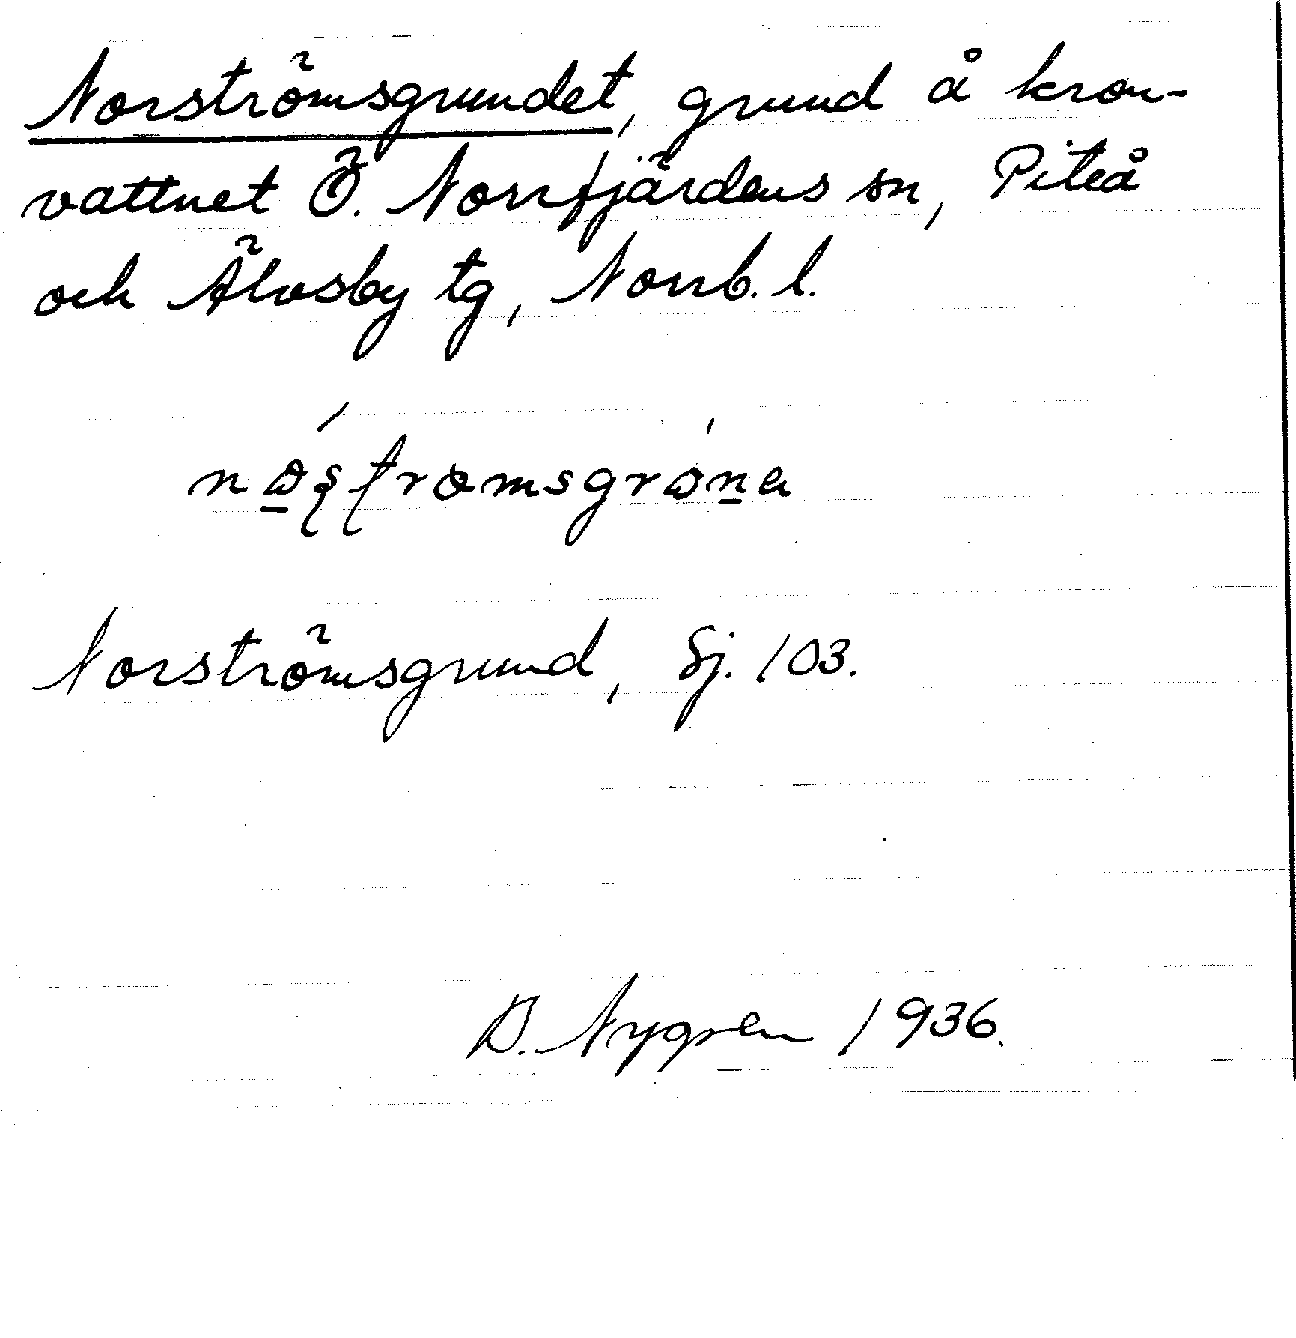 Norströmsgrundet, grund å kron-
vattnet Ö. Norrfjärdens sn, Piteå
och Älvsby tg, Norrb. l.
Norströmsgrund, Sj. 103.
B. Nygren 1936.